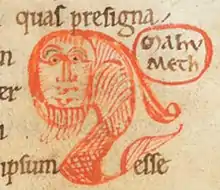 quas presigna
Mahu
meth
er
ipsum esse